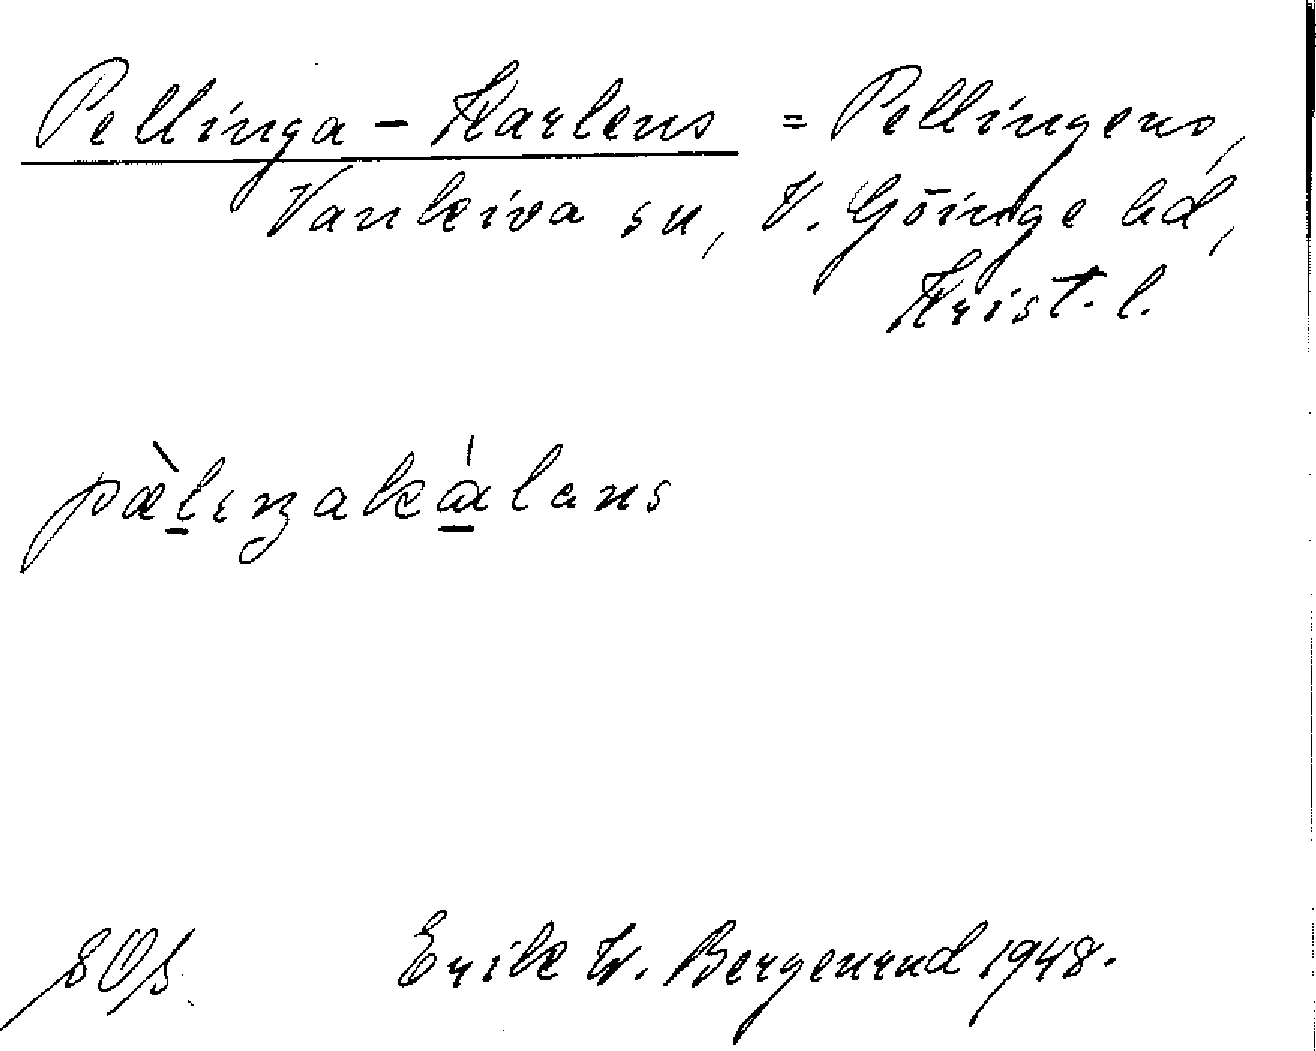 Pellinga-Karlens = Pellingens,
Vankiva sn, V. Göinge hd,
Krist. l.
pæ̀lıŋakálans
Erik W. Bergenrud 1948.